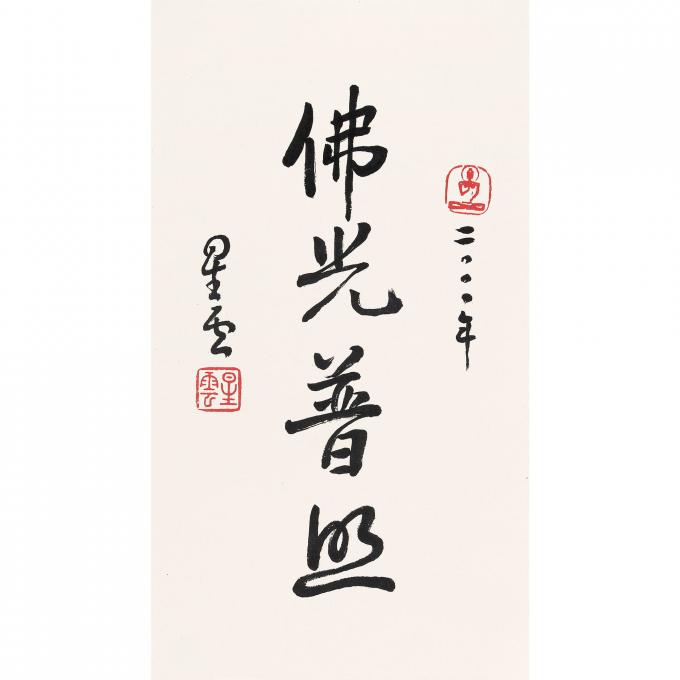 二〇〇〇年
佛光普照
星雲
星雲